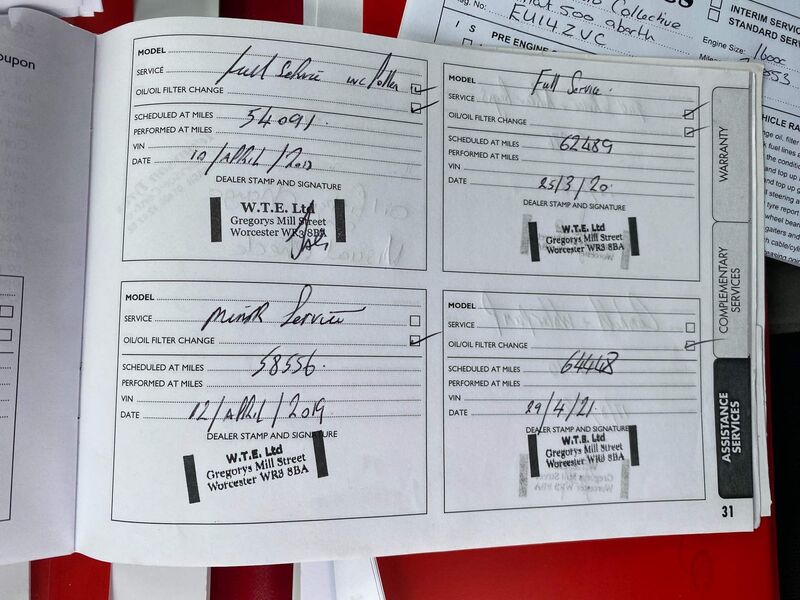 oupon
MODEL
SERVICE Full Service inc/Pollen
OIL/OIL FILTER CHANGE
SCHEDULED AT MILES 54091.
PERFORMED AT MILES
VIN
DATE 10/April/20
DEALER STAMP AND SIGNATURE
W.T.E. Ltd
Gregorys Mill Street
Worcester WR3 8BA
MODEL Full Service.
SERVICE
OIL/OIL FILTER CHANGE
SCHEDULED AT MILES 62489
PERFORMED AT MILES
VIN
DATE 25/3/20.
DEALER STAMP AND SIGNATURE
W.T.E. Ltd
Gregorys Mill Street
Worcester WR3 8BA
MODEL
SERVICE Minor Service
OIL/OIL FILTER CHANGE
SCHEDULED AT MILES 58556.
PERFORMED AT MILES
VIN
DATE 12/April/2019
DEALER STAMP AND SIGNATURE
W.T.E. Ltd
Gregorys Mill Street
Worcester WR3 8BA
MODEL
SERVICE
OIL/OIL FILTER CHANGE
SCHEDULED AT MILES 64448
PERFORMED AT MILES
VIN
DATE 29/4/21.
DEALER STAMP AND SIGNATURE
W.T.E. Ltd
Gregorys Mill Street
Worcester WR3 8BA
WARRANTY
COMPLEMENTARY SERVICES
ASSISTANCE SERVICES
31
Collective
500 abarth
Reg. No: EU14ZVC
I S
PRE ENGINE
INTERIM SERVICE
STANDARD SERV
Engine Size: